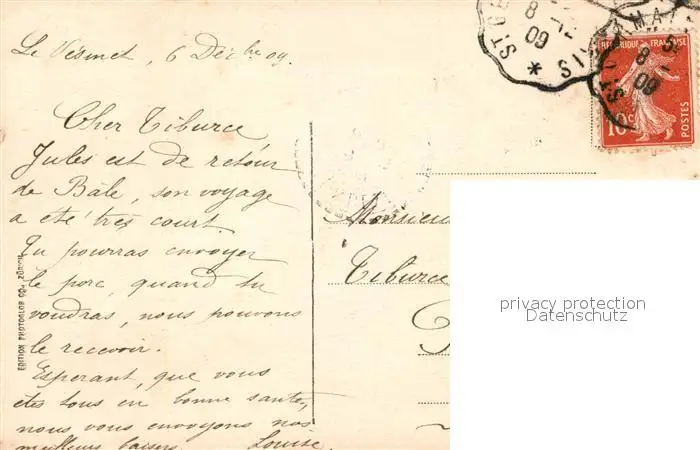 Le Vésinet, 6 Déc bre 09.
Cher Tiburce
Jules est de retour
de Bâle, son voyage
a été très court.
Tu pourras envoyer
le porc, quand tu
voudras, nous pouvons
le recevoir.
Esperant, que vous
êtes tous en bonne santé,
nous vous envoyons nos
meilleurs baisers Louise
EDITION PHOTOGLOB Co., ZÜRICH
ST GE
8 -12
09
*
MAI
8 -
09
REPUBLIQUE FRANÇAISE
10c
POSTES
Monsieu
Tiburce
privacy protection
Datenschutz